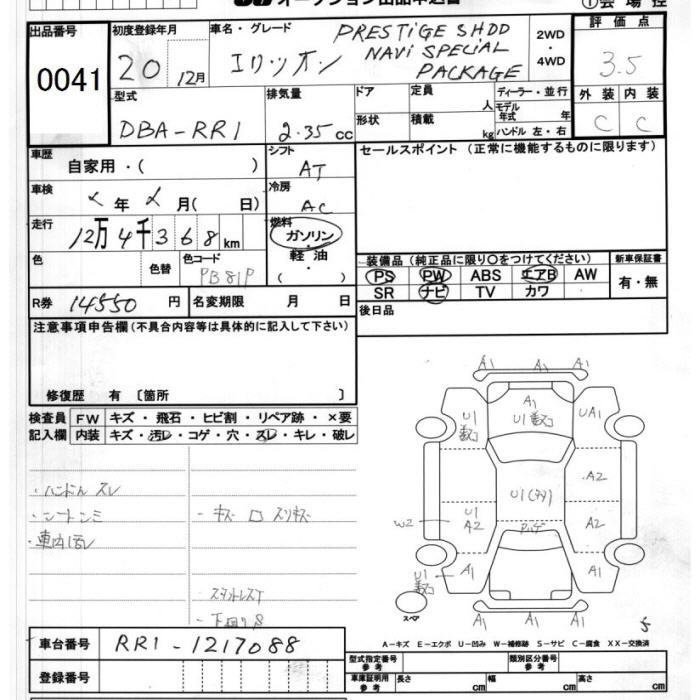 オークション出品申込書
①会場控
出品番号
0041
初度登録年月
20 12月
車名・グレード
エリシオン PRESTIGE SHDD
NAVI SPECIAL
PACKAGE
2WD
・
4WD
評価点
3.5
外装 内装
C C
型式
DBA-RR1
排気量
2.35cc
ドア
形状
定員
人
積載
kg
ディーラー・並行
モデル年式 年
ハンドル 左・右
車歴
自家用・( )
シフト
AT
セールスポイント (正常に機能するものに限ります)
車検
年 月( 日)
冷房
AC
走行
12万4千368km
燃料
ガソリン
軽油
( ・ )
色
色替
色コード
PB81P
装備品 (純正品に限り○をつけてください)
PS PW ABS エアB AW
SR ナビ TV カワ
新車保証書
有・無
R券 14550 円
名変期限 月 日
後日品
注意事項申告欄 (不具合内容等は具体的に記入して下さい)
修復歴 有 〔箇所 〕
検査員
記入欄
FW キズ・飛石・ヒビ割・リペア跡・×要
内装 キズ・汚レ・コゲ・穴・スレ・キレ・破レ
・ハンドルスレ
・シートシミ
・キズ
・車内汚レ
A1 A1 A1
A1
U1
U1
UA1
A2
U1
U1
A2
W2
A2
A1
U1
A1
A1 A1 A1
スペア
5
A-キズ E-エクボ U-凹み W-補修跡 S-サビ C-腐食 XX-交換済
車台番号
RR1-1217088
登録番号
型式指定番号
参考
類別区分番号
参考
車庫証明用
参考
長さ cm
幅 cm
高さ cm